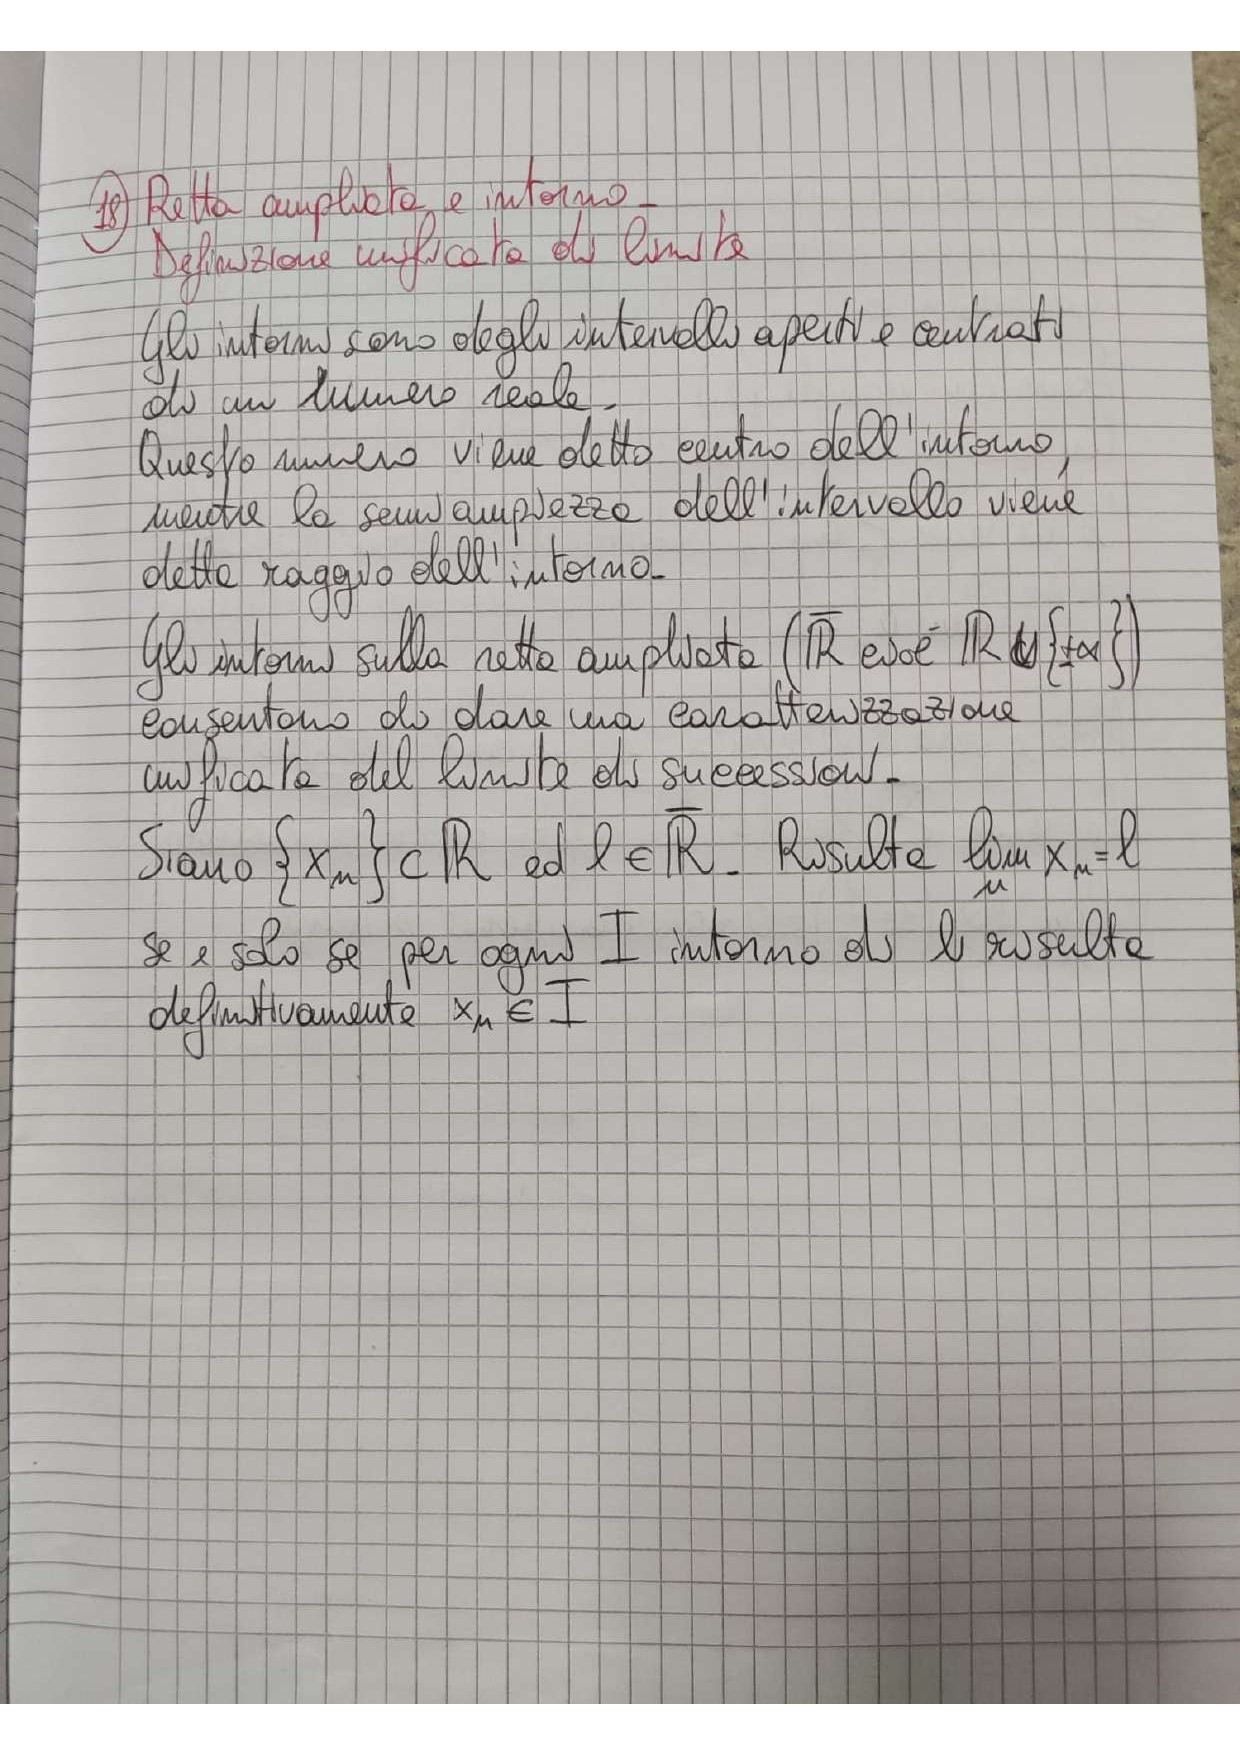 18) Retta ampliata e intorno.
Definizione unificata di limite
Gli intorni sono degli intervalli aperti e centrati
di un numero reale.
Questo numero viene detto centro dell'intorno,
mentre la semiampiezza dell'intervallo viene
detta raggio dell'intorno.
Gli intorni sulla retta ampliata (R̅ cioè ℝ ∪ {±∞})
consentono di dare una caratterizzazione
unificata del limite di successioni.
Siano {xₙ} ⊂ ℝ ed l ∈ R̅. Risulta lim xₙ = l
n
se e solo se per ogni I intorno di l risulta
definitivamente xₙ ∈ I